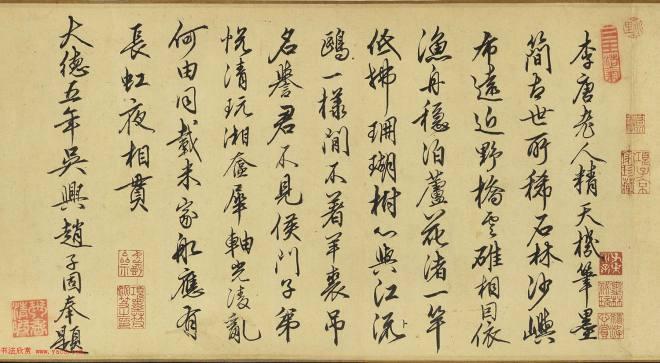 李唐老人精天機筆墨
簡古世所稀石林沙嶼
布遠近野橋雲碓相因依
漁舟穩泊蘆花渚一竿
低拂珊瑚樹心與江流
鷗一樣閒不著羊裘吊
名譽君不見侯門子弟
悅清玩湘奩犀軸光凌亂
何由同載米家船應有
長虹夜相貫
大德五年吳興趙子固奉題
項子京家珍藏
书法欣赏